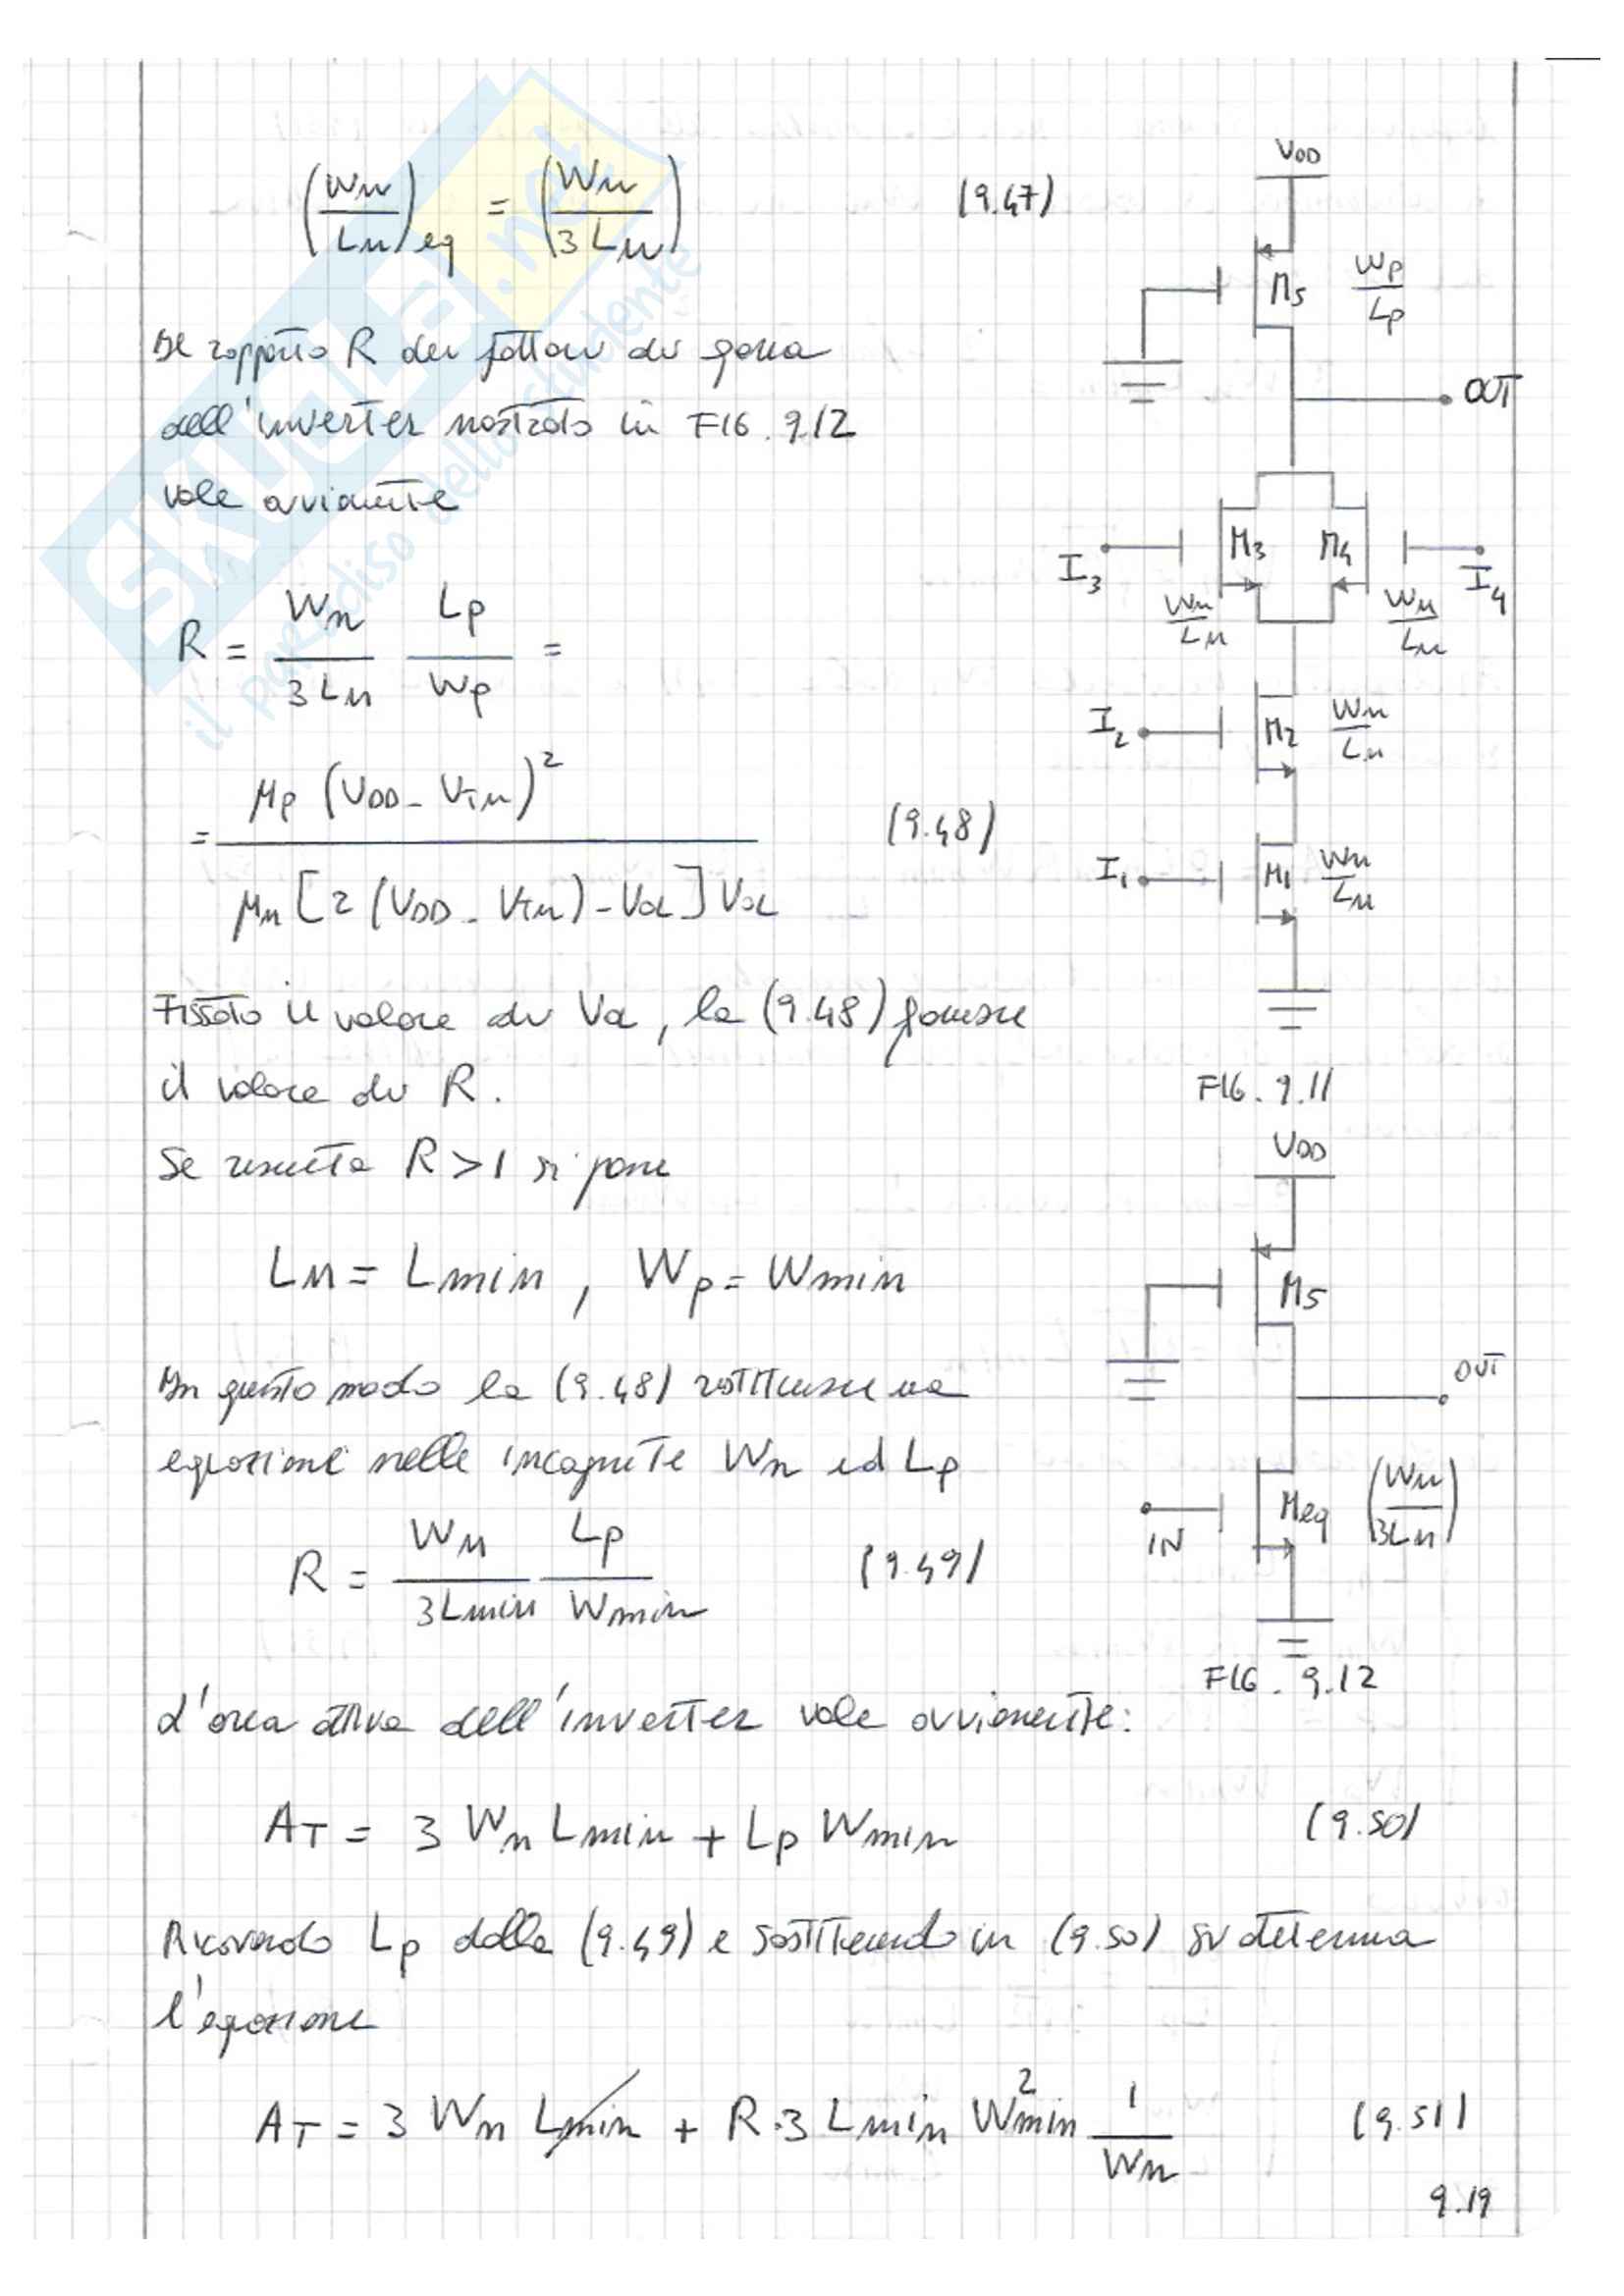 (Wn/Ln)eq = (Wn/3Ln) (9.47)
Il rapporto R dei fattori di forma
dell'inverter mostrato in FIG. 9.12
vale ovviamente
R = Wn/3Ln Lp/Wp =
= μp (VDD - VTn)² / μn [2 (VDD - VTn) - VOL] VOL (9.48)
Fissato il valore di VOL, la (9.48) fornisce
il valore di R.
Se risulta R > 1 si pone
Ln = Lmin, Wp = Wmin
In questo modo la (9.48) costituisce una
equazione nelle incognite Wn ed Lp
R = Wn/3Lmin Lp/Wmin (9.49)
L'area attiva dell'inverter vale ovviamente:
AT = 3 Wn Lmin + Lp Wmin (9.50)
Ricavando Lp dalla (9.49) e sostituendo in (9.50) si determina
l'equazione
AT = 3 Wn Lmin + R·3 Lmin W²min 1/Wn (9.51)
9.19
VDD
M5 Wp/Lp
OUT
I3 M3 M4 I4
Wn/Ln Wn/Ln
I2 M2 Wn/Ln
I1 M1 Wn/Ln
FIG. 9.11
VDD
M5
OUT
IN Meq (Wn/3Ln)
FIG. 9.12
SKUOLA.net
il paradiso dello studente